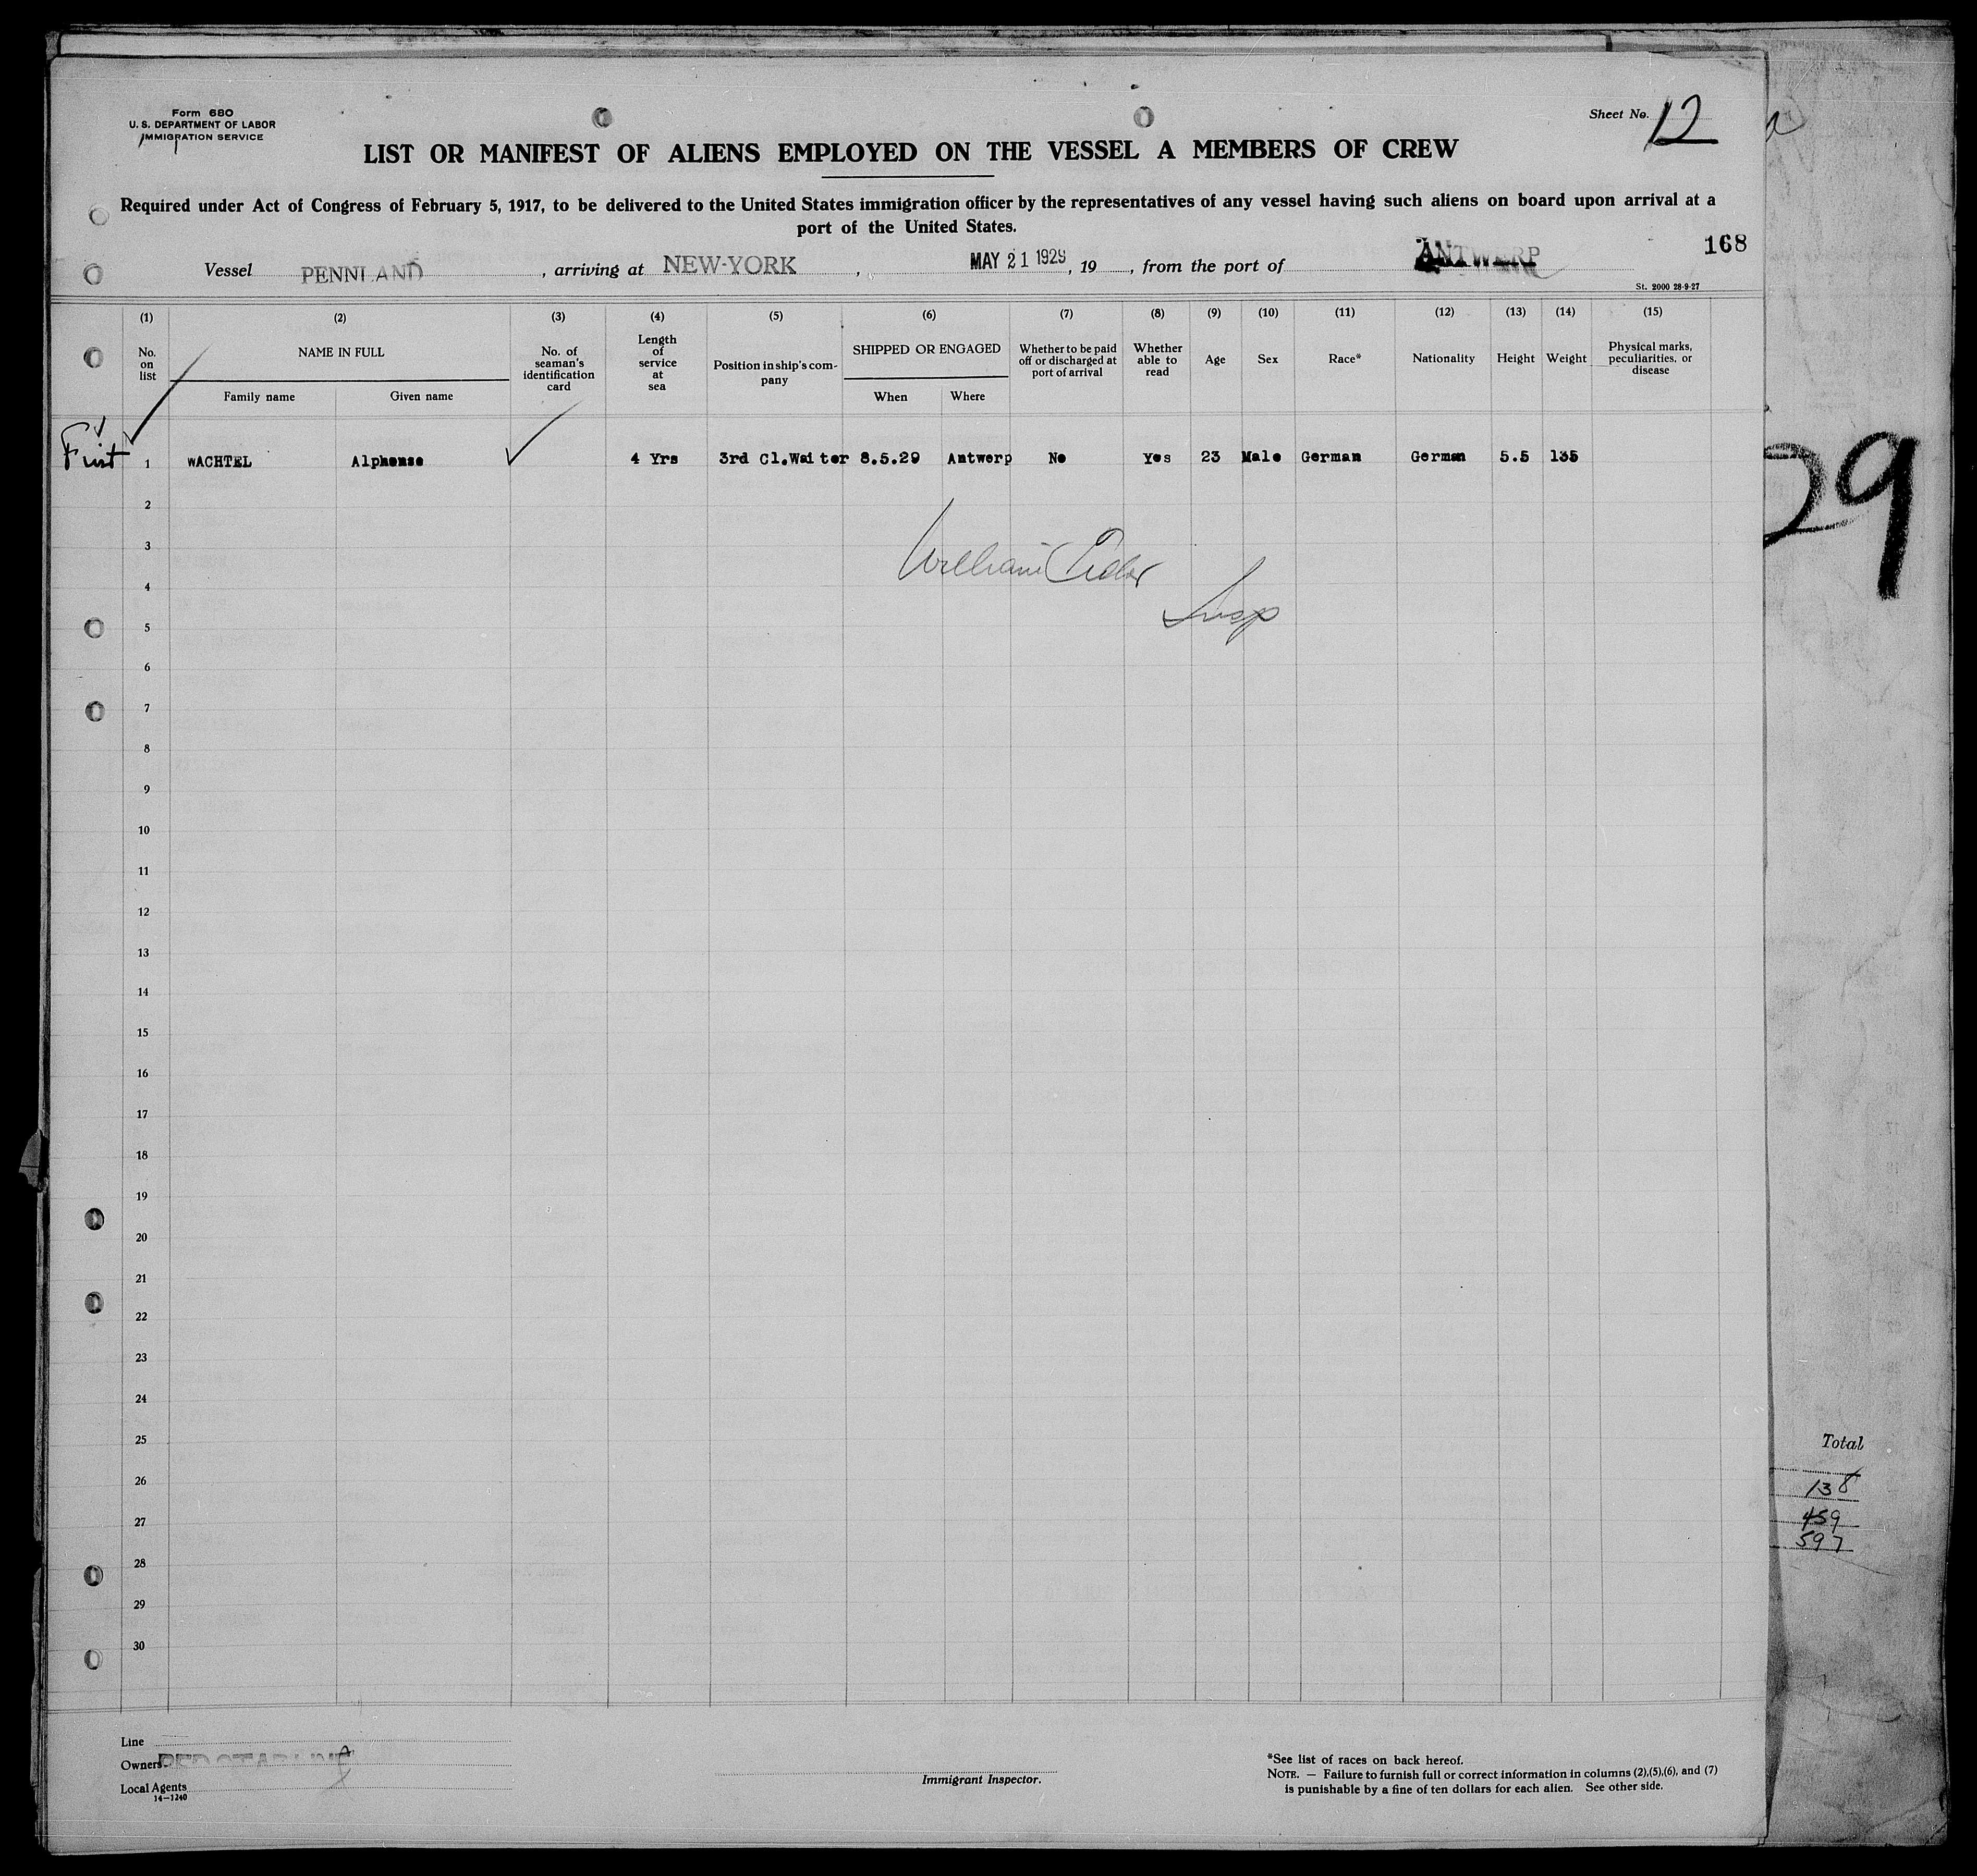 Form 680
U. S. DEPARTMENT OF LABOR
IMMIGRATION SERVICE
Sheet No. 12
LIST OR MANIFEST OF ALIENS EMPLOYED ON THE VESSEL A MEMBERS OF CREW
Required under Act of Congress of February 5, 1917, to be delivered to the United States immigration officer by the representatives of any vessel having such aliens on board upon arrival at a
port of the United States.
168
Vessel PENNLAND, arriving at NEW-YORK, MAY 21 1929, 19, from the port of ANTWERP
St. 2000 28-9-27
(1) (2) (3) (4) (5) (6) (7) (8) (9) (10) (11) (12) (13) (14) (15)
No. on list NAME IN FULL No. of seaman's identification card Length of service at sea Position in ship's company SHIPPED OR ENGAGED Whether to be paid off or discharged at port of arrival Whether able to read Age Sex Race* Nationality Height Weight Physical marks, peculiarities, or disease
Family name Given name When Where
First 1 WACHTEL Alphonse 4 Yrs 3rd Cl.Waiter 8.5.29 Antwerp No Yes 23 Male German German 5.5 135
2
William
3
4
Insp
5
6
7
8
9
10
11
12
13
14
15
16
17
18
19
20
21
22
23
24
25
26
27
28
29
30
29
Total
138
459
597
Line
Owners RED STAR LINE
Local Agents
14-1240
Immigrant Inspector.
*See list of races on back hereof.
NOTE. — Failure to furnish full or correct information in columns (2),(5),(6), and (7)
is punishable by a fine of ten dollars for each alien. See other side.